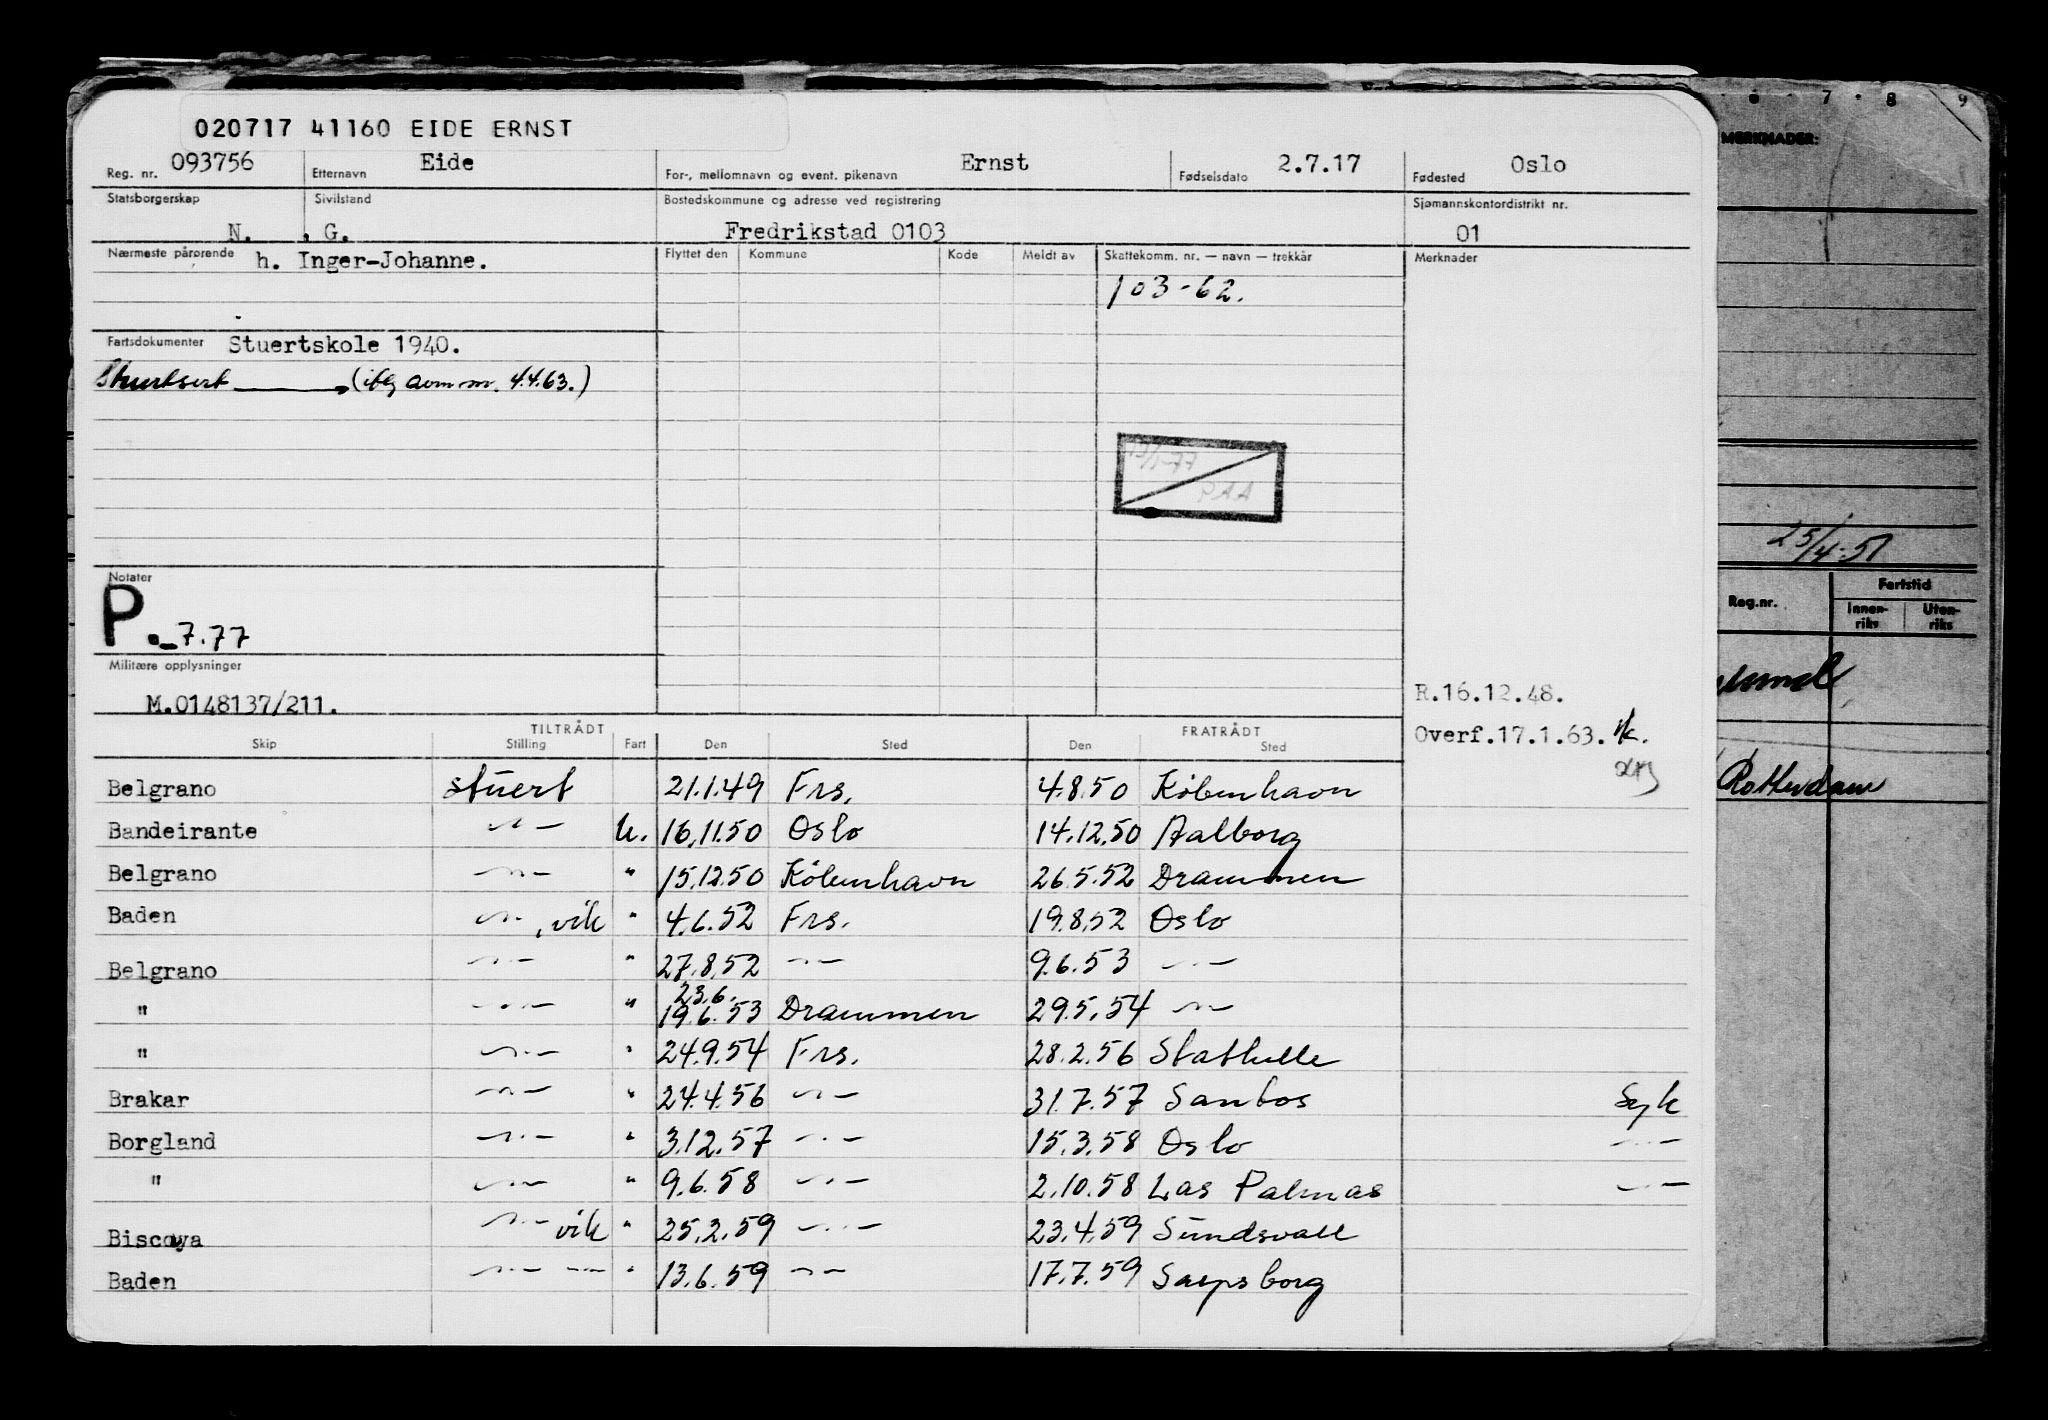 020717 41160 EIDE ERNST
Reg. nr. 093756 Etternavn Eide For-, mellomnavn og event. pikenavn Ernst Fødselsdato 2.7.17 Fødested Oslo
Statsborgerskap Sivilstand Bostedskommune og adresse ved registrering Sjømannskontordistrikt nr.
N. , G. Fredrikstad 0103 01
Nærmeste pårørende h. Inger-Johanne. Flyttet den Kommune Kode Meldt av Skattekomm. nr. — navn — trekkår Merknader
103-62.
Fartsdokumenter Stuertskole 1940.
Stuertsert (iflg 4.4.63.)
PAA
Notater
P. - 7.77
Militære opplysninger
M.0148137/211.
R.16.12.48.
Overf.17.1.63.
TILTRÅDT FRATRÅDT
Skip Stilling Fart Den Sted Den Sted
Belgrano stuert 21.1.49 Frs. 4.8.50 København
Bandeirante -"- U. 16.11.50 Oslo 14.12.50 Aalborg
Belgrano -"- " 15.12.50 København 26.5.52 Drammen
Baden -"-, vik " 4.6.52 Frs. 19.8.52 Oslo
Belgrano -"- " 27.8.52 -"- 9.6.53 -"-
23.6.
" -"- " 19.6.53 Drammen 29.5.54 -"-
" -"- " 24.9.54 Frs. 28.2.56 Stathelle
Brakar -"- " 24.4.56 -"- 31.7.57 Santos Syk
Borgland -"- " 3.12.57 -"- 15.3.58 Oslo -"-
" -"- " 9.6.58 -"- 2.10.58 Las Palmas -"-
Biscaya -"- vik " 25.2.59 -"- 23.4.59 Sundsvall
Baden -"- -"- " 13.6.59 -"- 17.7.59 Sarpsborg
6 7 8 9
MERKNADER:
25/4-51
Reg.nr. Fartstid
Innen-riks Uten-riks
Rotterdam